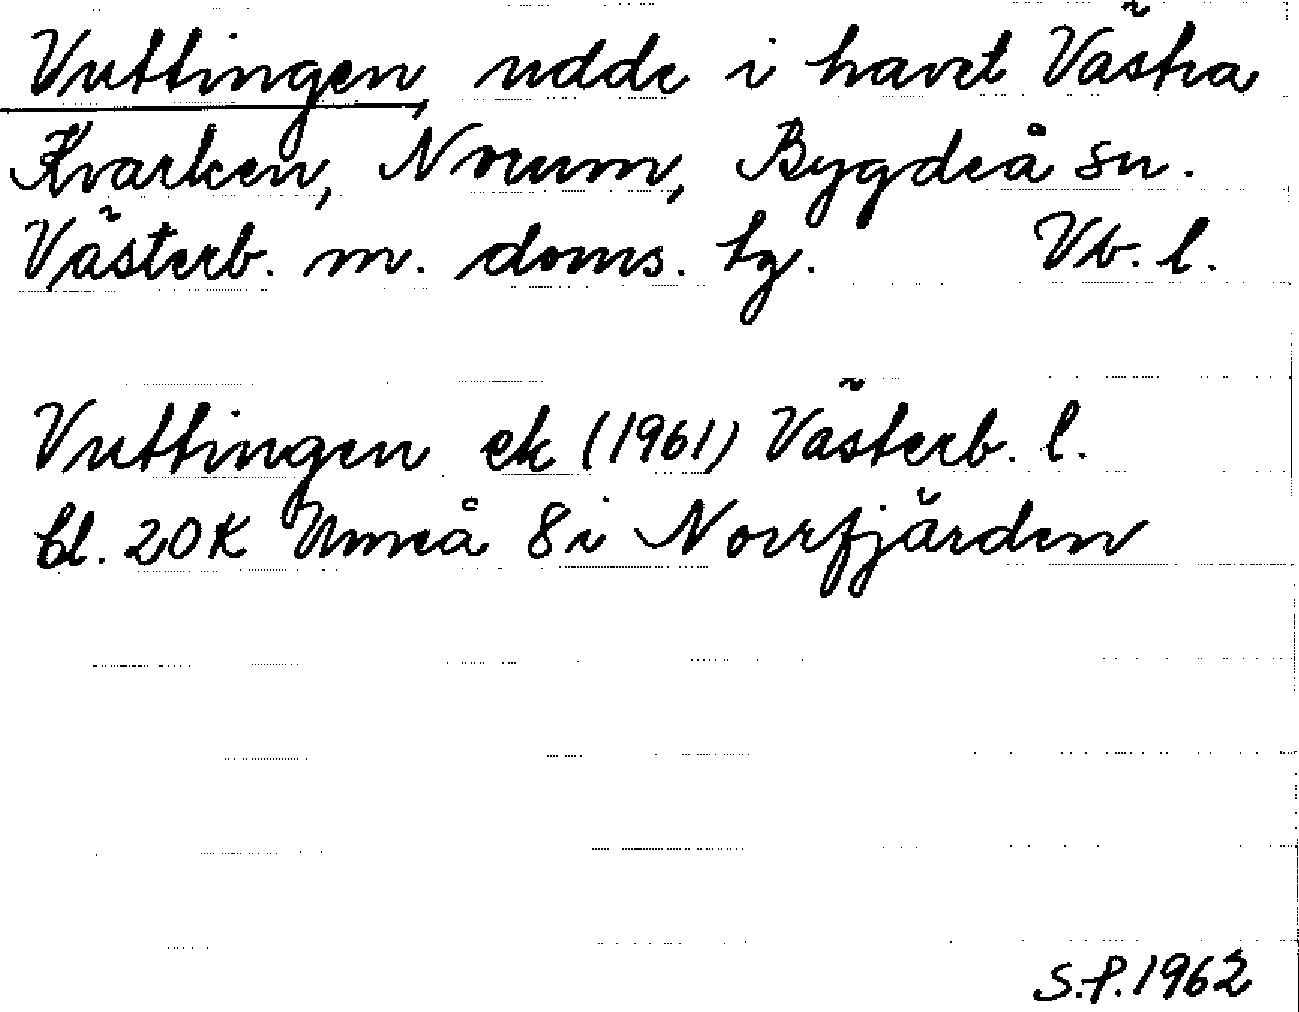 Vuttingen, udde i havet Västra
Kvarken, Norum, Bygdeå sn.
Västerb. m. doms. tg. Vb. l.
Vuttingen ek (1961) Västerb. l.
bl. 20K Umeå 8i Norrfjärden
S.P. 1962